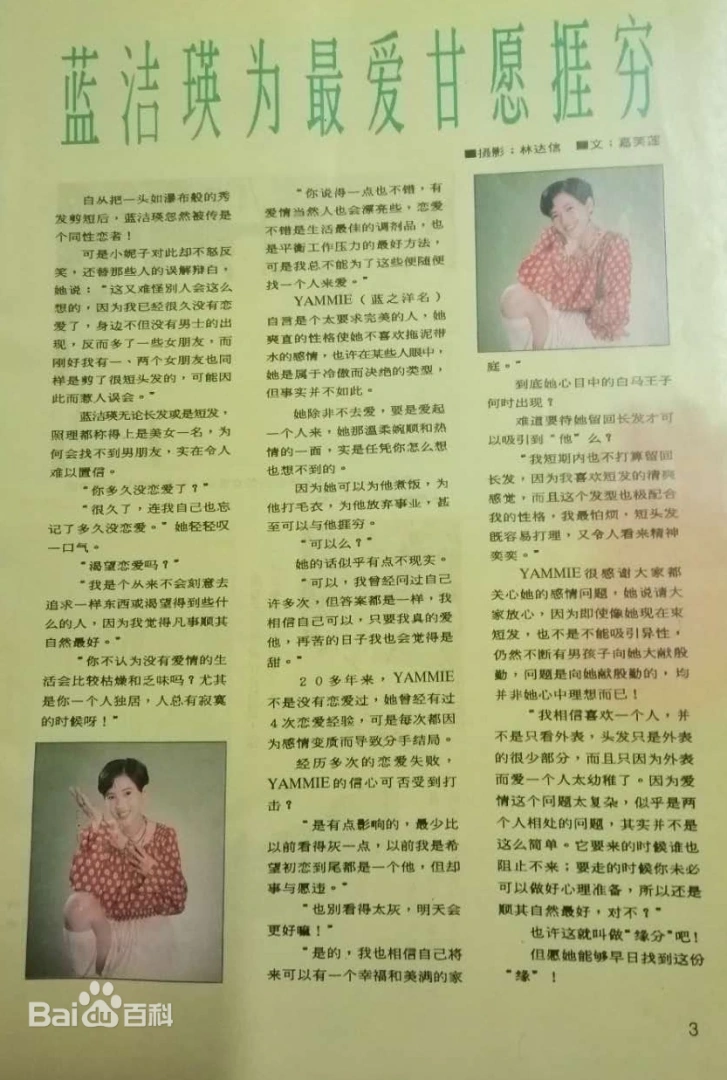 蓝洁瑛为最爱甘愿捱穷
■摄影：林达信 ■文：嘉芙莲
自从把一头如瀑布般的秀
发剪短后，蓝洁瑛忽然被传是
个同性恋者！
可是小妮子对此却不怒反
笑，还替那些人的误解辩白，
她说：“这又难怪别人会这么
想的，因为我已经很久没有恋
爱了，身边不但没有男士的出
现，反而多了一些女朋友，而
刚好我有一、两个女朋友也同
样是剪了很短头发的，可能因
此而惹人误会。”
蓝洁瑛无论长发或是短发，
照理都称得上是美女一名，为
何会找不到男朋友，实在令人
难以置信。
“你多久没恋爱了？”
“很久了，连我自己也忘
记了多久没恋爱。”她轻轻叹
一口气。
“渴望恋爱吗？”
“我是个从来不会刻意去
追求一样东西或渴望得到些什
么的人，因为我觉得凡事顺其
自然最好。”
“你不认为没有爱情的生
活会比较枯燥和乏味吗？尤其
是你一个人独居，人总有寂寞
的时候呀！”
“你说得一点也不错，有
爱情当然人也会漂亮些，恋爱
不错是生活最佳的调剂品，也
是平衡工作压力的最好方法，
可是我总不能为了这些便随便
找一个人来爱。”
YAMMIE（蓝之洋名）
自言是个太要求完美的人，她
爽直的性格使她不喜欢拖泥带
水的感情，也许在某些人眼中，
她是属于冷傲而决绝的类型，
但事实并不如此。
她除非不去爱，要是爱起
一个人来，她那温柔婉顺和热
情的一面，实是任凭你怎么想
也想不到的。
因为她可以为他煮饭，为
他打毛衣，为他放弃事业，甚
至可以与他捱穷。
“可以么？”
她的话似乎有点不现实。
“可以，我曾经问过自己
许多次，但答案都是一样，我
相信自己可以，只要我真的爱
他，再苦的日子我也会觉得是
甜。”
20多年来，YAMMIE
不是没有恋爱过，她曾经有过
4次恋爱经验，可是每次都因
为感情变质而导致分手结局。
经历多次的恋爱失败，
YAMMIE的信心可否受到打
击？
“是有点影响的，最少比
以前看得灰一点，以前我是希
望初恋到尾都是一个他，但却
事与愿违。”
“也别看得太灰，明天会
更好嘛！”
“是的，我也相信自己将
来可以有一个幸福和美满的家
庭。”
到底她心目中的白马王子
何时出现？
难道要待她留回长发才可
以吸引到“他”么？
“我短期内也不打算留回
长发，因为我喜欢短发的清爽
感觉，而且这个发型也极配合
我的性格，我最怕烦，短头发
既容易打理，又令人看来精神
奕奕。”
YAMMIE很感谢大家都
关心她的感情问题，她说请大
家放心，因为即使像她现在束
短发，也不是不能吸引异性，
仍然不断有男孩子向她大献殷
勤，问题是向她献殷勤的，均
并非她心中理想而已！
“我相信喜欢一个人，并
不是只看外表，头发只是外表
的很少部分，而且只因为外表
而爱一个人太幼稚了。因为爱
情这个问题太复杂，似乎是两
个人相处的问题，其实并不是
这么简单。它要来的时候谁也
阻止不来；要走的时候你未必
可以做好心理准备，所以还是
顺其自然最好，对不？”
也许这就叫做“缘分”吧！
但愿她能够早日找到这份
“缘”！
Bai du 百科
3